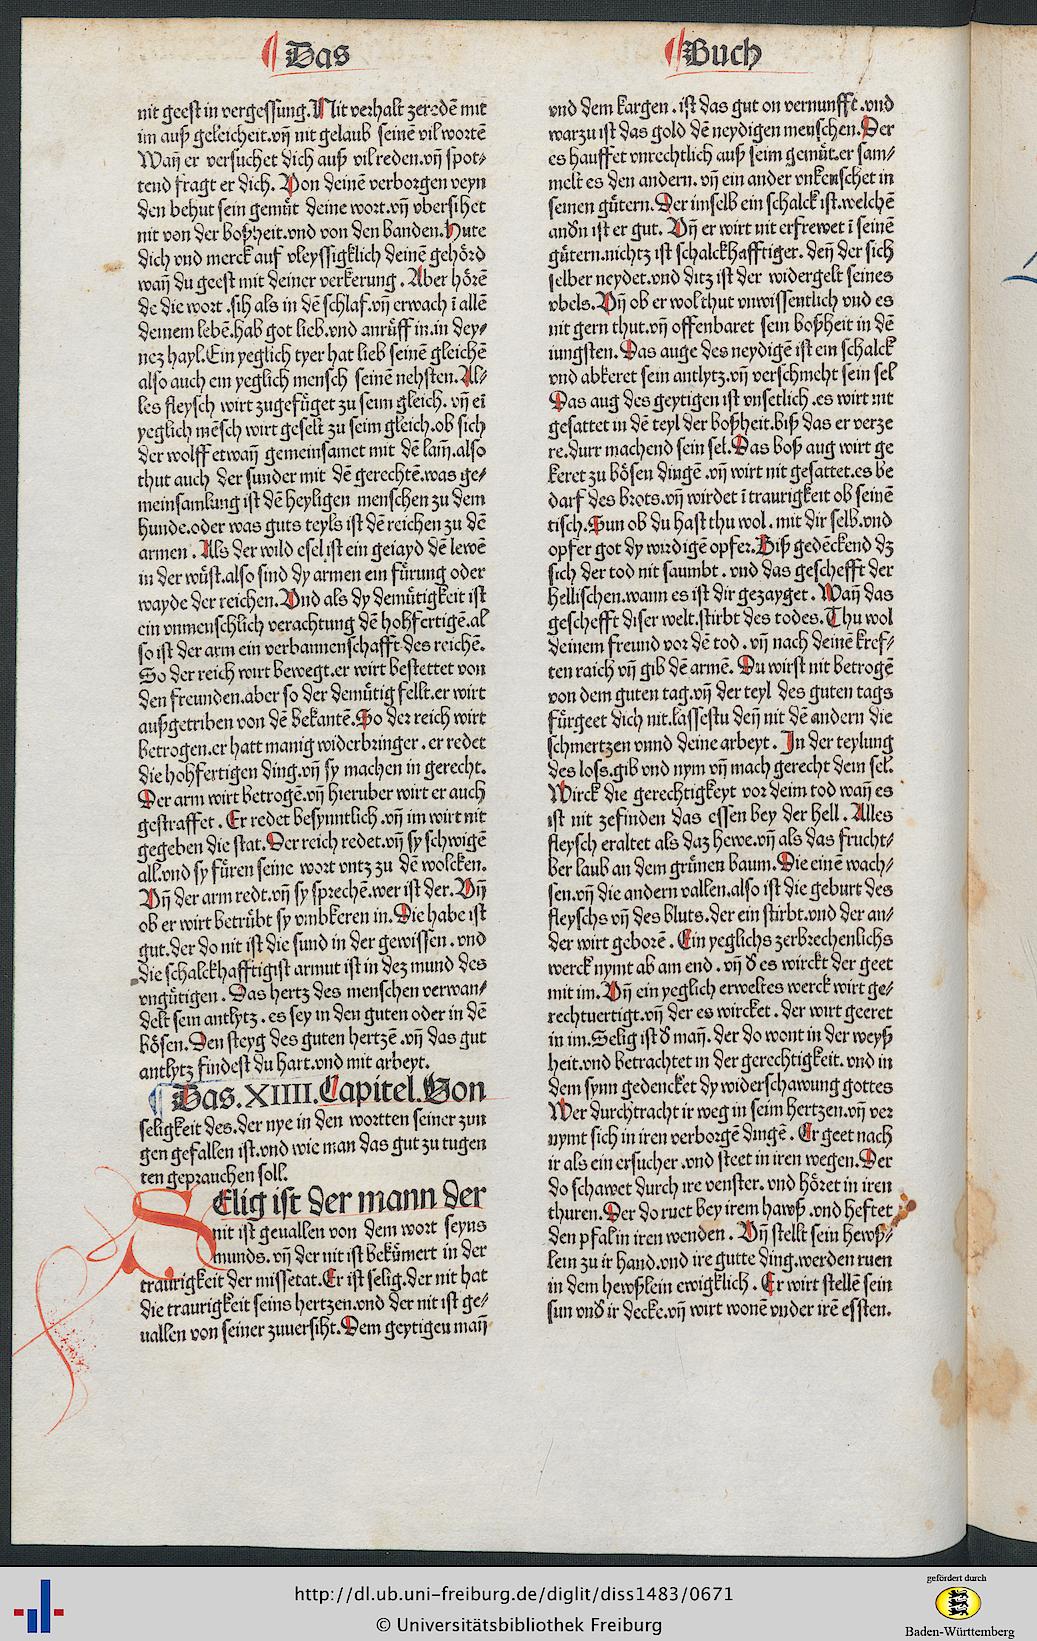 Das
Buch
nit geest in vergessung. Nit verhalt zeredē mit
im auß geleicheit.vñ nit gelaub seinē vil wortē
Wañ er versuchet dich auß vil reden.vñ spot⸗
tend fragt er dich. Von deinē verborgen veyn
den behut sein gemüt deine wort.vñ vbersihet
nit von der boßheit.vnd von den banden. Hute
dich vnd merck auf vleyssigklich deinē gehörd
wañ du geest mit deiner verkerung. Aber hörē
de die wort.sih als in dē schlaf.vñ erwach ī allē
deinem lebē.hab got lieb.vnd anrüff in.in dey⸗
nez hayl.Ein yeglich tyer hat lieb seinē gleichē
also auch ein yeglich mensch seinē nehsten. Al⸗
les fleysch wirt zugefüget zu seim gleich. vñ eī
yeglich mēsch wirt geselt zu seim gleich.ob sich
der wolff etwañ gemeinsamet mit dē lam̄.also
thut auch der sunder mit dē gerechtē.was ge⸗
meinsamlung ist dē heyligen menschen zu dem
hunde.oder was guts teyls ist dē reichen zu dē
armen. Als der wild esel ist ein geiayd dē lewē
in der wüst.also sind dy armen ein fürung oder
wayde der reichen. Vnd als dy demütigkeit ist
ein vnmenschlich verachtung dē hohfertigē.al
so ist der arm ein verbannenschafft des reichē.
So der reich wirt bewegt.er wirt bestettet von
den freunden.aber so der demütig fellt.er wirt
außgetriben von dē bekantē. So der reich wirt
betrogen.er hatt manig widerbringer. er redet
die hohfertigen ding.vñ sy machen in gerecht.
Der arm wirt betrogē.vñ hieruber wirt er auch
gestraffet. Er redet besynntlich.vñ im wirt nit
gegeben die stat. Der reich redet.vñ sy schwigē
all.vnd sy füren seine wort vntz zu dē wolcken.
Vñ der arm redt.vñ sy sprechē.wer ist der. Vñ
ob er wirt betrübt sy vmbkeren in. Die habe ist
gut.der do nit ist die sund in der gewissen. vnd
die schalckhafftigist armut ist in dez mund des
vngütigen. Das hertz des menschen verwan⸗
delt sein antlytz. es sey in den guten oder in dē
bösen. Den steyg des guten hertzē.vñ das gut
antlytz findest du hart.vnd mit arbeyt.
Das.XIIII.Capitel.Von
seligkeit des.der nye in den wortten seiner zun
gen gefallen ist.vnd wie man das gut zu tugen
ten geprauchen soll.
SElig ist der mann der
nit ist geuallen von dem wort seyns
munds. vñ der nit ist bekümert in der
traurigkeit der missetat. Er ist selig.der nit hat
die traurigkeit seins hertzen.vnd der nit ist ge⸗
uallen von seiner zuuersiht. Dem geytigen mañ
vnd dem kargen. ist das gut on vernunfft.vnd
warzu ist das gold dē neydigen menschen. Der
es hauffet vnrechtlich auß seim gemüt.er sam⸗
melt es den andern. vñ ein ander vnkeuschet in
seinen gütern. Der im selb ein schalck ist.welchē
andn ist er gut. Vñ er wirt nit erfrewet ī seinē
gütern.nichtz ist schalckhafftiger. deñ der sich
selber neydet.vnd ditz ist der widergelt seines
vbels. Vñ ob er wol thut vnwissentlich vnd es
nit gern thut.vñ offenbaret sein boßheit in dē
iungsten. Das auge des neydigē ist ein schalck
vnd abkeret sein antlytz.vñ verschmeht sein sel
Das aug des geytigen ist vnsetlich.es wirt nit
gesattet in dē teyl der boßheit.biß das er verze
re.durr machend sein sel. Das boß aug wirt ge
keret zu bösen dingē.vñ wirt nit gesattet.es be
darf des brots.vñ wirdet ī traurigkeit ob seinē
tisch. Sun ob du hast thu wol. mit dir selb.vnd
opfer got dy wirdigē opfer. Biß gedēckend dz
sich der tod nit saumbt. vnd das geschefft der
hellischen.wann es ist dir gezayget. Wañ das
geschefft diser welt.stirbt des todes. Thu wol
deinem freund vor dē tod. vñ nach deinē kref⸗
ten raich vñ gib dē armē. Du wirst nit betrogē
von dem guten tag.vñ der teyl des guten tags
fürgeet dich nit.lassestu deñ nit dē andern die
schmertzen vnnd deine arbeyt. In der teylung
des loss.gib vnd nym vñ mach gerecht dein sel.
Wirck die gerechtigkeyt vor deim tod wañ es
ist nit zefinden das essen bey der hell. Alles
fleysch eraltet als daz hewe.vñ als das frucht⸗
ber laub an dem grünen baum. Die einē wach⸗
sen.vñ die andern vallen.also ist die geburt des
fleyschs vñ des bluts.der ein stirbt.vnd der an⸗
der wirt geborē. Ein yeglichs zerbrechenlichs
werck nymt ab am end. vñ d es wirckt der geet
mit im. Vñ ein yeglich erweltes werck wirt ge⸗
rechtuertigt.vñ der es wircket. der wirt geeret
in im. Selig ist d mañ. der do wont in der weyß
heit.vnd betrachtet in der gerechtigkeit. vnd in
dem synn gedencket dy widerschawung gottes
Wer durchtracht ir weg in seim hertzen.vñ ver
nymt sich in iren verborgē dingē. Er geet nach
ir als ein ersucher.vnd steet in iren wegen. Der
do schawet durch ire venster. vnd höret in iren
thuren. Der do ruet bey irem hawß.vnd heftet
den pfal in iren wenden. Vñ stellt sein hewß⸗
lein zu ir hand.vnd ire gutte ding.werden ruen
in dem hewßlein ewigklich. Er wirt stellē sein
sun vnd ir decke.vñ wirt wonē vnder irē essten.
http://dl.ub.uni-freiburg.de/diglit/diss1483/0671
© Universitätsbibliothek Freiburg
gefördert durch
Baden-Württemberg